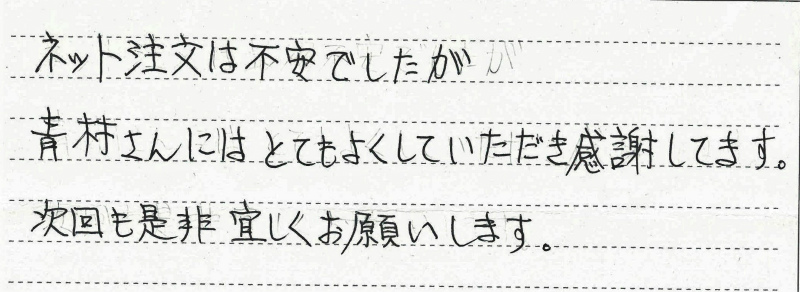 ネット注文は不安でしたが
青村さんにはとてもよくしていただき感謝してます。
次回も是非宜しくお願いします。